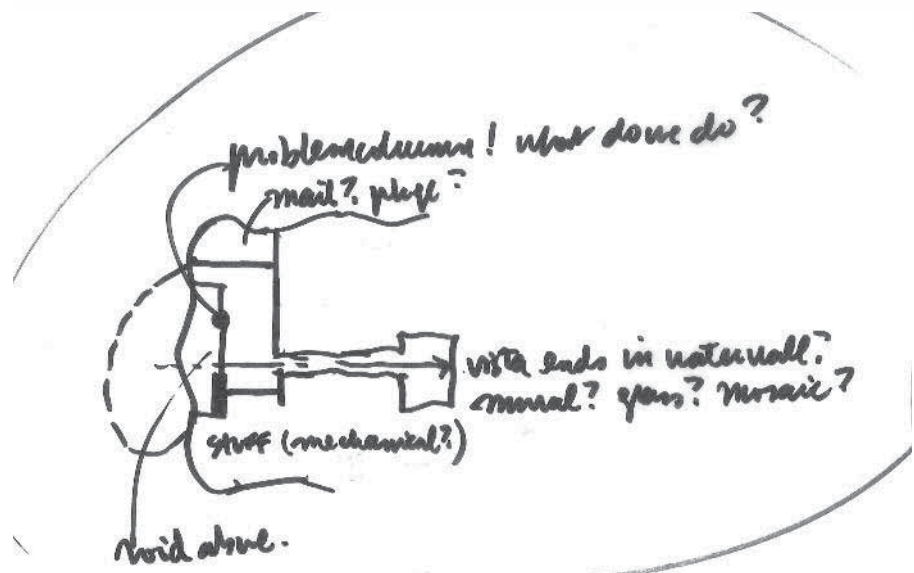 problem column! what do we do?
mail? 
vista ends in waterwall?
mural? glass? mosaic?
stuff (mechanical?)
void above.